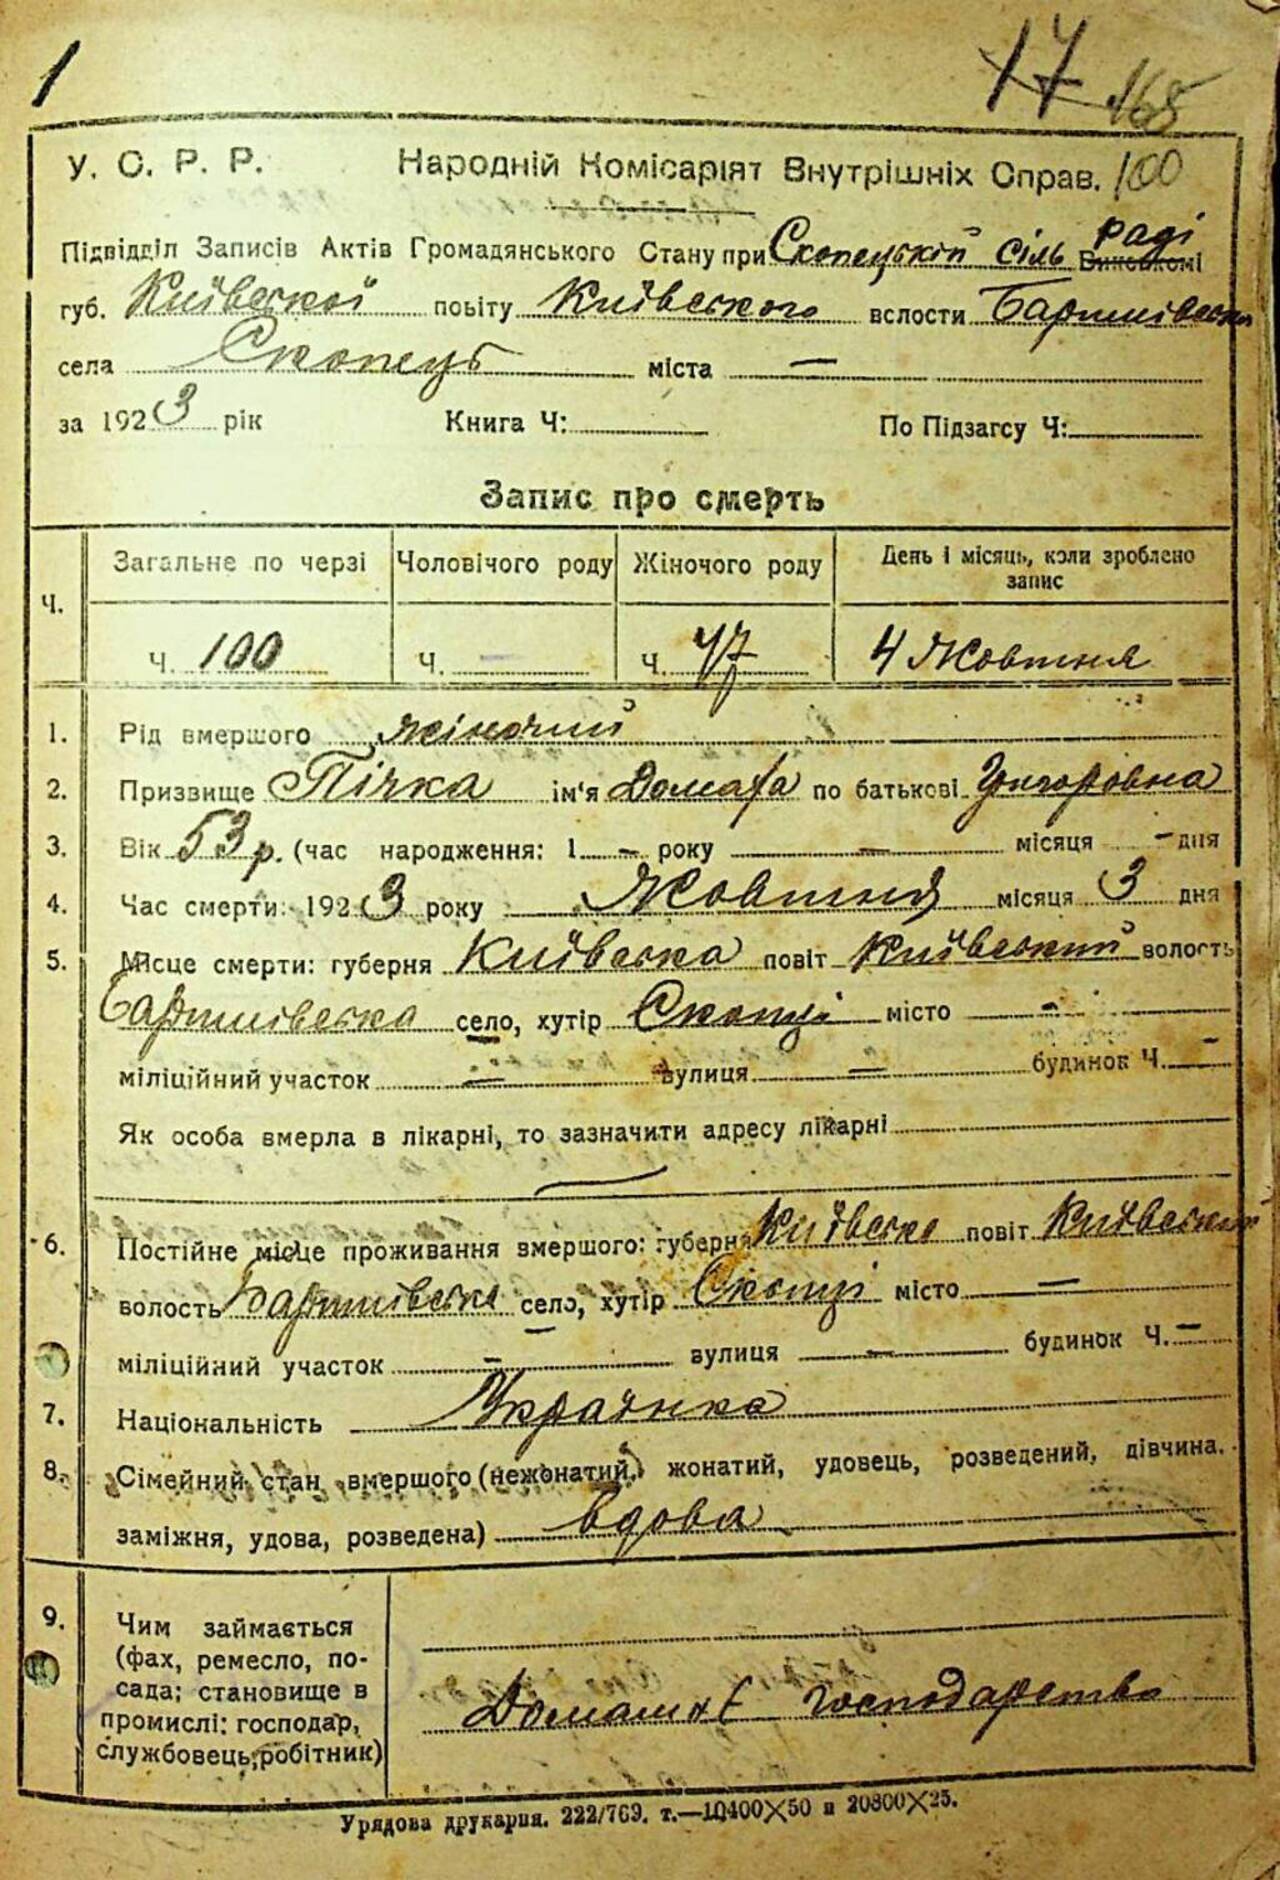 1
17 165
У. С. Р. Р. Народній Комісаріят Внутрішніх Справ. 100
раді
Підвідділ Записів Актів Громадянського Стану при Скопецькій сіль Виконкомі
губ. Київської повіту Київського вслости Баришівсько
села Скопець міста —
за 1923 рік Книга Ч: По Підзагсу Ч:
Запис про смерть
Ч. Загальне по черзі Чоловічого роду Жіночого роду День і місяць, коли зроблено запис
Ч. 100 Ч. — Ч. 47 4 Жовтня
1. Рід вмершого жіночий
2. Призвище Пічка ім'я Домаха по батькові Григоровна
3. Вік 53 р. (час народження: 1 — року — місяця — дня
4. Час смерти: 1923 року Жовтня місяця 3 дня
5. Місце смерти: губерня Київська повіт Київський волость
Баришівська село, хутір Скопці місто —
міліційний участок — вулиця — будинок Ч. —
Як особа вмерла в лікарні, то зазначити адресу лікарні
—
6. Постійне місце проживання вмершого: губерня Київське повіт Київський
волость Баришівське село, хутір Скопці місто —
міліційний участок — вулиця — будинок Ч. —
7. Національність Українка
8. Сімейний стан вмершого (нежонатий, жонатий, удовець, розведений, дівчина.
заміжня, удова, розведена) вдова
9. Чим займається
(фах, ремесло, по-
сада; становище в
промислі: господар,
службовець, робітник)
Домашнє господарство
Урядова друкарня. 222/769. т.—10400×50 и 20800×25.